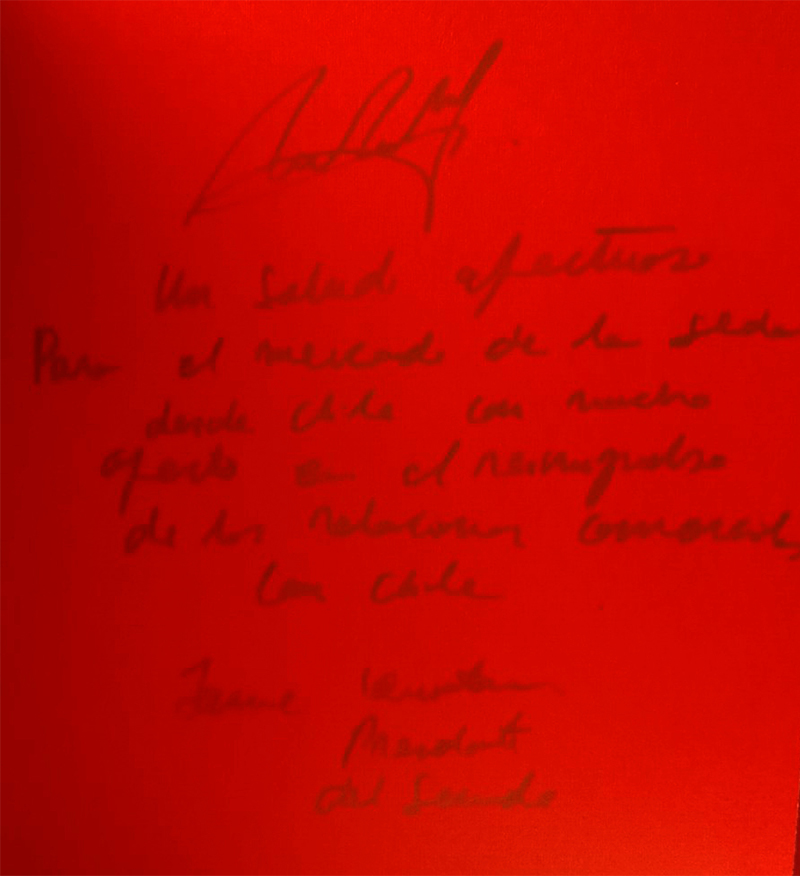 Un Saludo afectuoso
Para el mercado de la seda
desde Chile con mucho
afecto en el
de las relaciones comerciales
Con Chile
Jaime Quintana
Presidente
del Senado